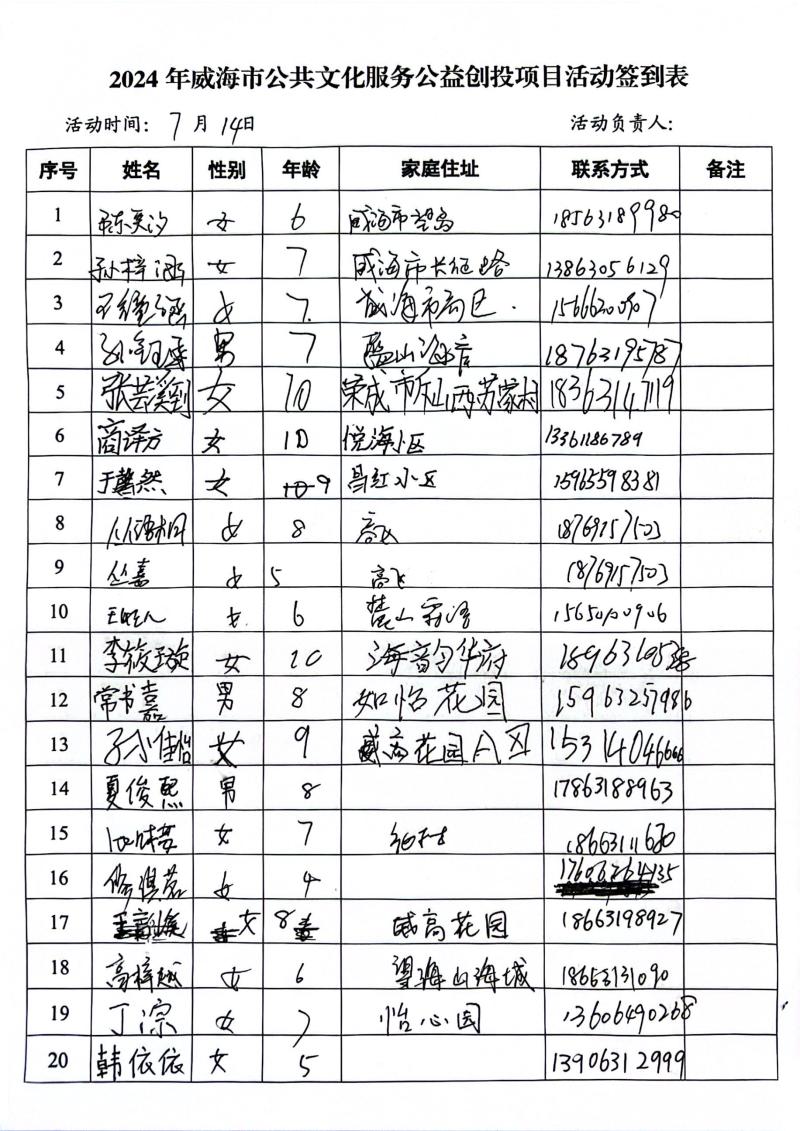 2024 年威海市公共文化服务公益创投项目活动签到表
活动时间: 7 月 14日 活动负责人:
序号 姓名 性别 年龄 家庭住址 联系方式 备注
1 女 6 威海市望岛 18563189980
2 孙梓涵 女 7 威海市长征路 13863056129
3 女 7. 威海市高区.
4 男 7 18763195787
5 张芸溪 女 10 荣成市 山西苏家村 18363147119
6 商泽方 女 10 悦海小区 13361186789
7 于馨然 女 9 昌红小区 15965598381
8 女 8 18769157503
9 丛嘉 女 5 18769157503
10 女 6 15650100906
11 李筱璇 女 10 海韵华府
12 常书嘉 男 8 如怡花园 15963257986
13 孙佳怡 女 9 威高花园A区 15314046666
14 夏俊熙 男 8 17863188963
15 女 7 18663111680
16 女 4 17606264135
17 女 8 威高花园 18663198927
18 高梓越 女 6 望海山海城 18663131090
19 丁淙 女 7 怡心园 13606490268
20 韩依依 女 5 13906312999